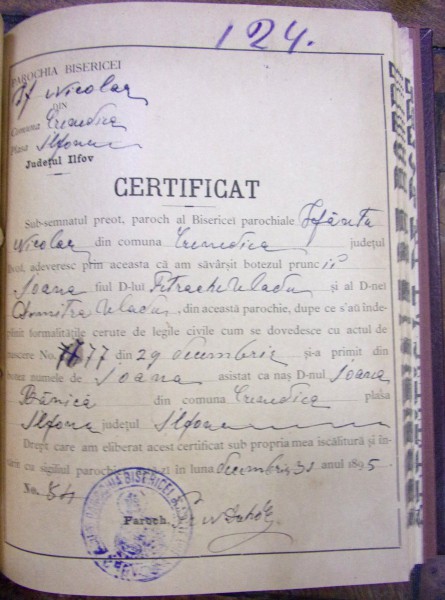 124.
PAROCHIA BISERICEI
Sf Nicolae
DIN
Comuna
Plasa Ilfov
Județul Ilfov
CERTIFICAT
Sub-semnatul preot, paroch al Bisericei parochiale Sfântu
Nicolae din comuna județul
Ilfov, adeveresc prin aceasta că am săvârșit botezul prunc
Ioana fiul D-lui Petrache Vladu și al D-nei
Dumitra Vladu, din această parochie, dupe ce s'au înde-
plinit formalitățile cerute de legile civile cum se dovedesce cu actul de
nascere No. 77 din 29 decembrie și-a primit din
botez numele de Ioana asistat ca naș D-nul Ioana
Bănică din comuna plasa
județul Ilfov
Drept care am eliberat acest certificat sub propria mea iscălitură și în-
cu sigiliul parochiei în luna decembrie 31 anul 1895.
No. 84
Paroch,